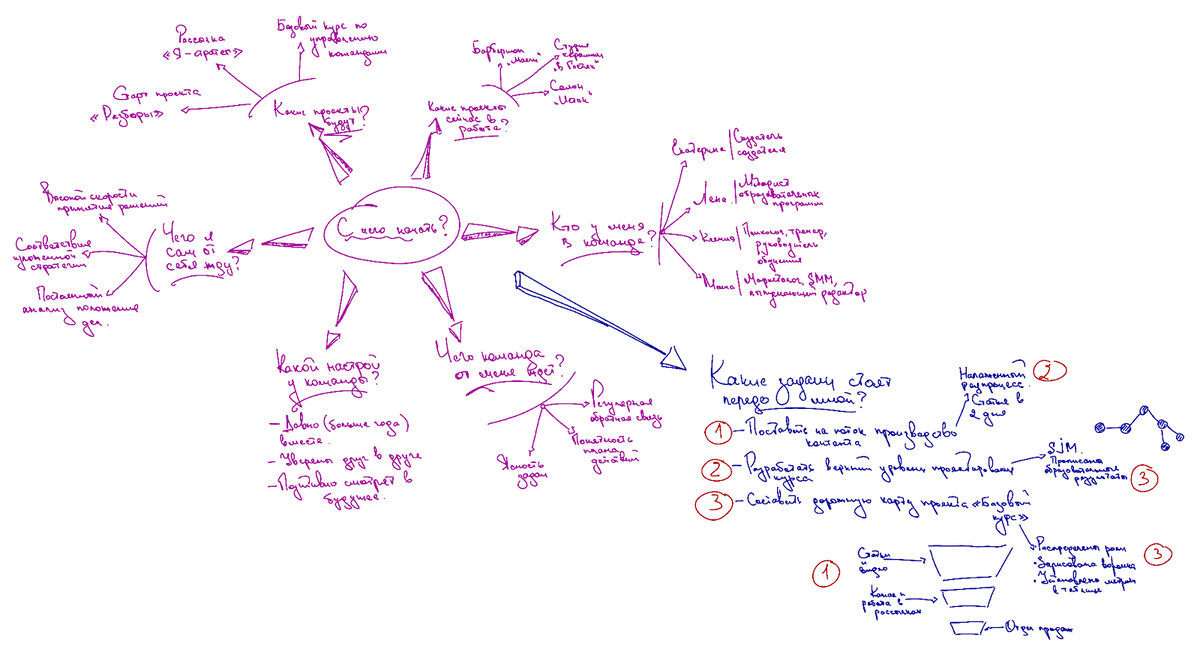 Рассылка
«Я-артет»
Базовый курс по
управлению
командами
Старт проекта
«Разборы»
Какие проекты
будут?
Барбершоп
Студия
керамики
Салон
Какие проекты
сейчас в
работе?
С чего начать?
Екатерина | Создатель
создателя
Лена | Методист
образовательных
программ
Ксения | Психолог, тренер,
руководитель
обучения
Маша | Маркетолог, SMM,
выпускающий редактор
Кто у меня
в команде?
Высокой скорости
принятие решений
Соответствие
стратегии
анализ положения
дел.
Чего я
сам от
себя жду?
Какой настрой
у команды?
- Давно (больше года)
вместе.
- Уверены друг в друге
- Позитивно смотрят в
будущее.
Чего команда
от меня ждёт?
Регулярная
обратная связь
Понятность
плана
действий
Ясность
задач
Какие задачи стоят
передо мной?
Налаженный
ред.процесс.
Статья в
2 дня
2
1 - Поставить на поток производство
контента
2 - Разработать верхний уровень проектирования
курса
SJM.
Прописаны
образовательные
результаты
3
3 - Составить дорожную карту проекта «Базовый
курс»
Распределены роли
• Зарисована воронка
• Установлены метрики
в таблице
3
1
Статьи
и
видео
работа в
рассылках
Отдел продаж